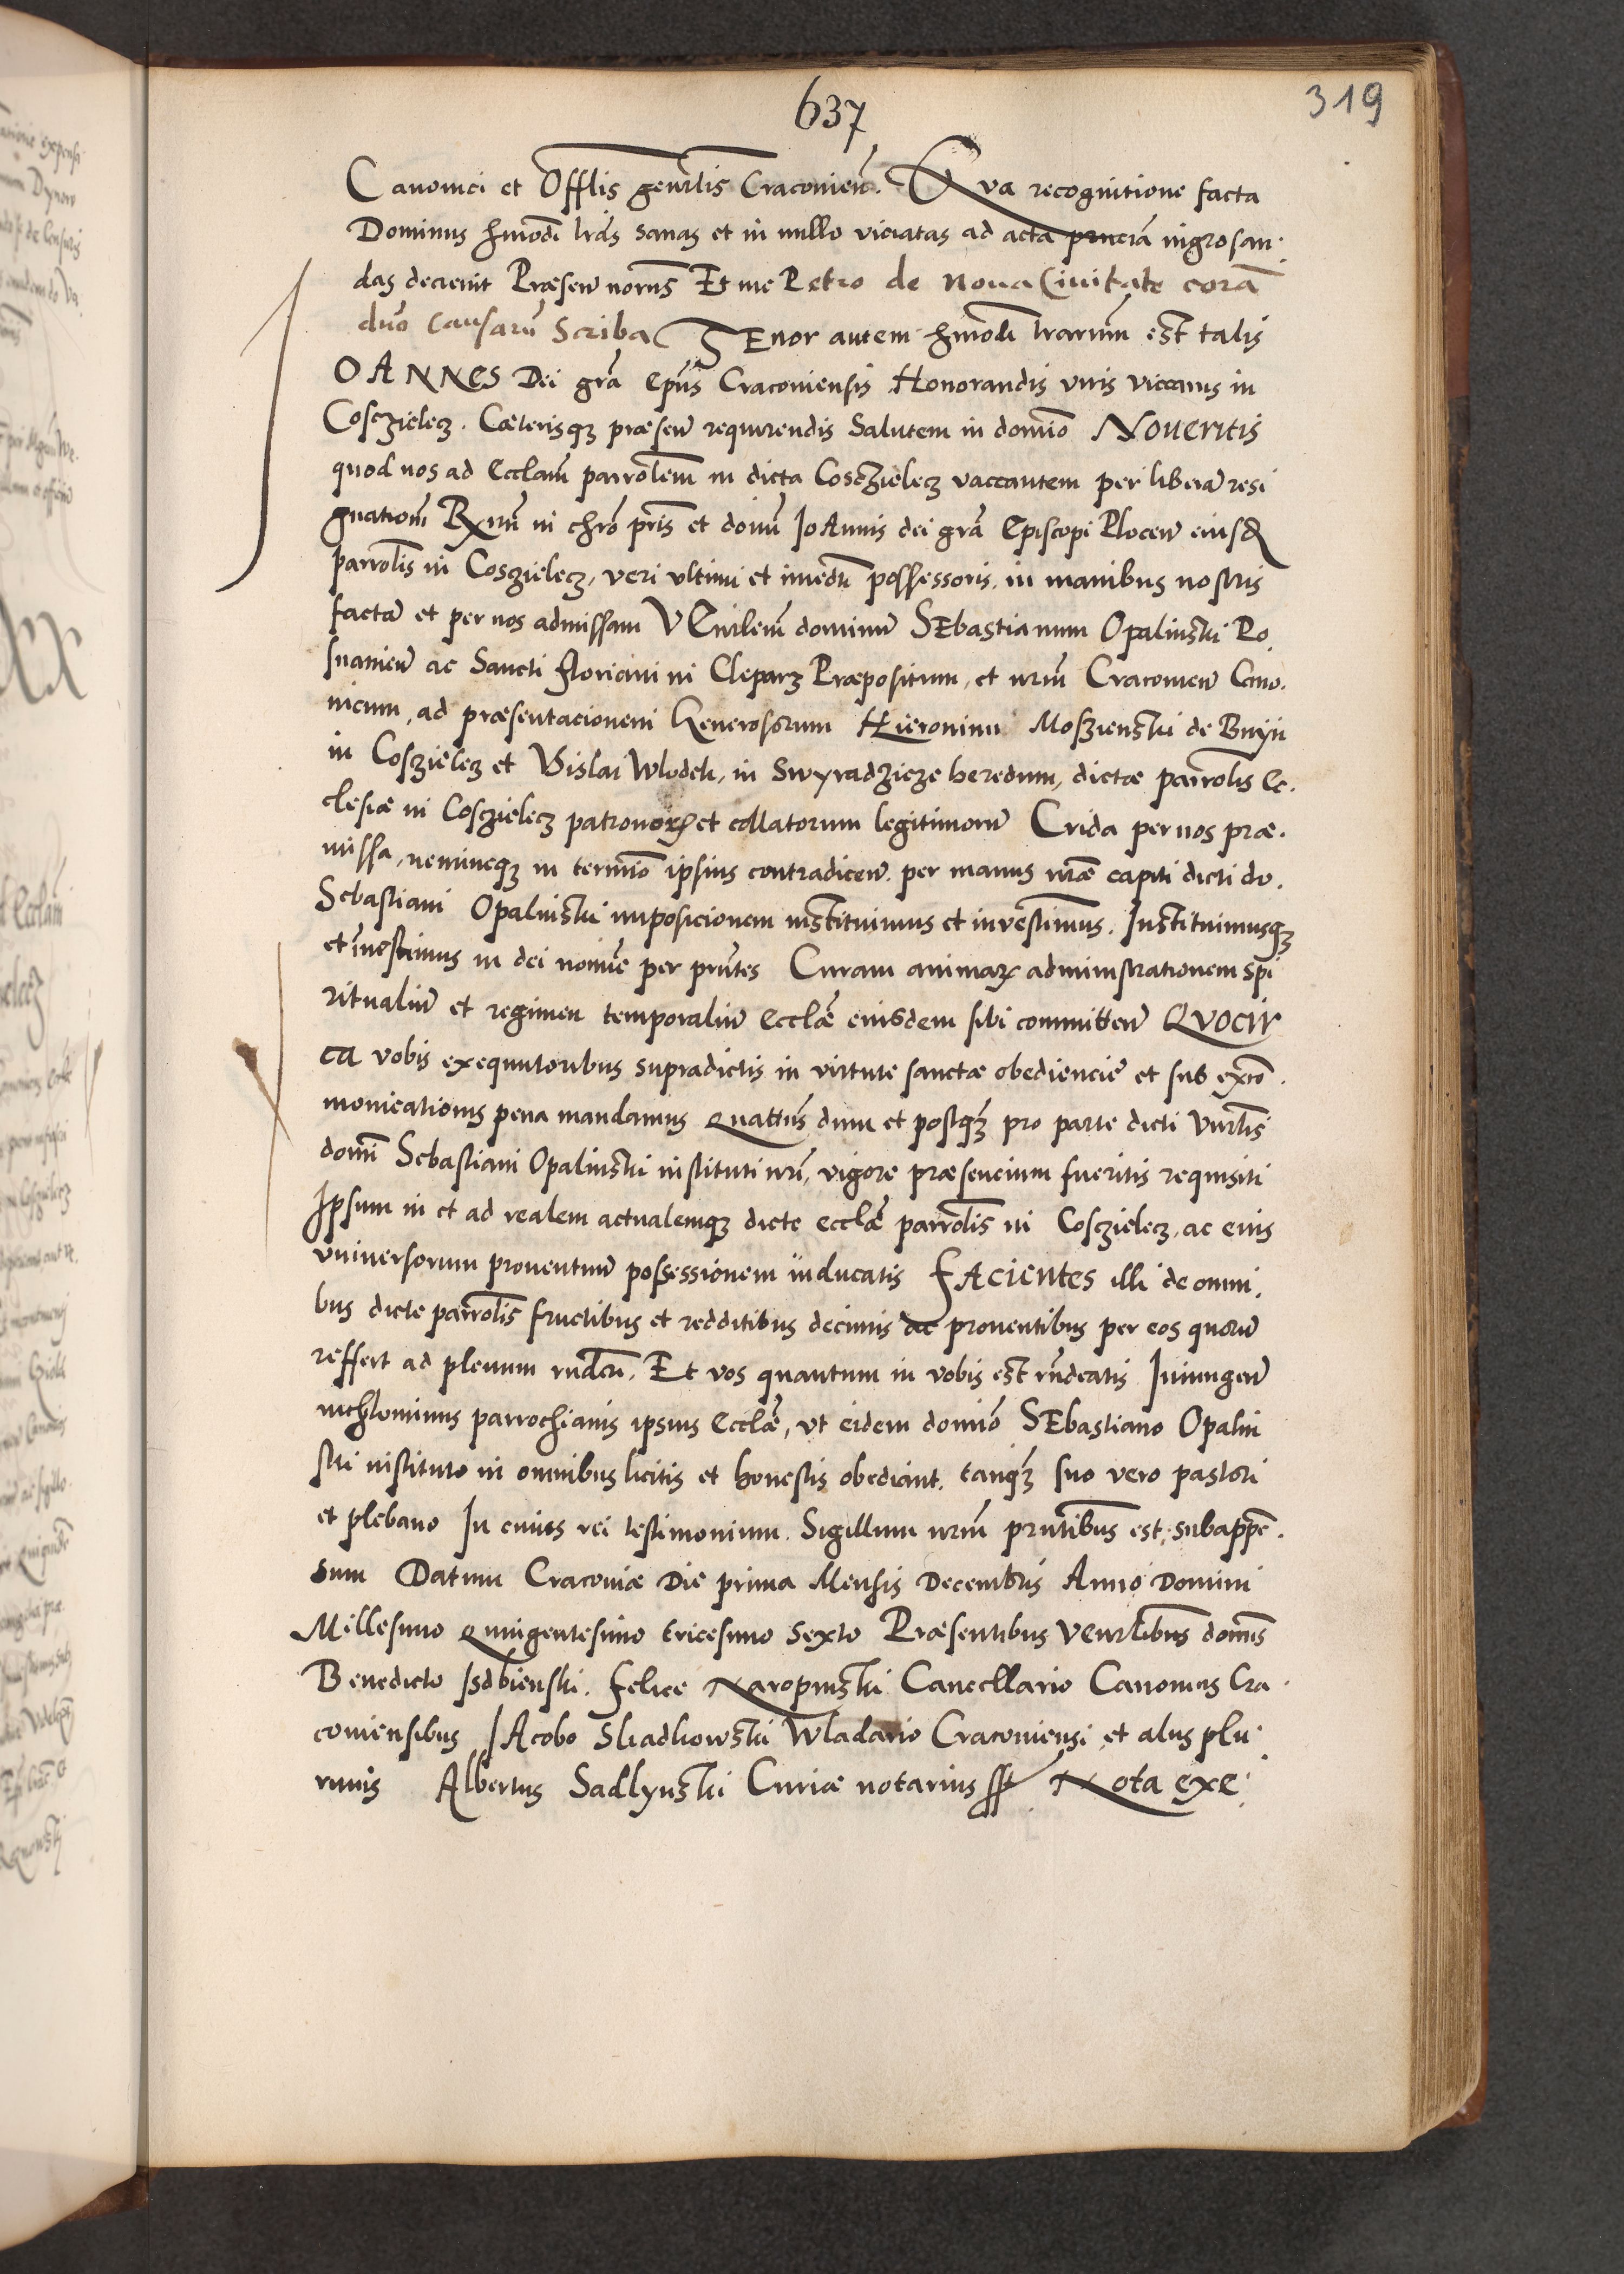 637
319
Canonici et Offlis genrlis Cracovien̄. Qva recognitione facta
Dominus hm̄odi lrās sanas et in nullo viciatas ad acta pn̄ciā ingrosan.
das decrevit Præsen̄ nor̄nis Et me Petro de Noua Ciuitate corā
dn̄o Causarū Scriba TEnor autem hm̄odi lrarum est talis
IOANNES Dei grā Epūs Cracoviensis Honorandis viris viccariis in
Cosczielecz. Cæterisqz præsen̄ requirendis Salutem in domiō NOVERITIS
quod nos ad Ecclam̄ parrolem̄ in dicta Cosczielecz vaccantem per liberā resi
gnationē Rx̄m in chrō pris et domī IoAnnis dei grā Episcopi Plocen̄ eiusd
parrolis in Cosczielecz, veri vltimi et imedti possessoris, in manibus nostris
factā et per nos admissam VEnrlem̄ dominū SEbastianum Opalinski Po.
snanien̄ ac Sancti floriani in Cleparz Præpositum, et nrm̄ Cracovien̄ Cano.
nicum, ad præsentacionem Generosorum Hieronimi Mosziensky de Bnyn
in Cosczielecz et Vislai Wlodek, in Swyradzicze heredum, dictæ parrolis Ec.
clesiæ in Cosczielecz patronorꝝ et collatorum legitimorū Crida per nos præ.
missa, nemineqz in termiō ipsius contradicen̄. per manus nræ capiti dicti do.
Sebastiani Opalinski imposicionem instituimus et investimus. Instituimusqz
et investimus in dei nomine per prn̄tes Curam animarꝝ administrationem spi
ritualiū et regimen temporaliū Ecclæ eiusdem sibi committen̄ QVOCIR
CA vobis exequutoribus supradictis in virtute sanctæ obedienciē et sub excō.
monicationis pena mandamus Quattn̄s dum et postqz̄ pro parte dicti Vnrlis
domī Sebastiani Opalinski instituti nrī, vigore præsencium fueritis requisiti
Ipsum in et ad realem actualemqz dicte ecclæ parrolis in Cosczielecz, ac eius
vniversorum proventuū possessionem inducatis FACIENTES illi de omni.
bus dicte parrolis fructibus et redditibus decimis ac proventibus per eos quorū
reffert ad plenum rn̄deri. Et vos quantum in vobis est rn̄deatis Iniungen̄
nichlominus parrochianis ipsius Ecclæ, vt eidem domiō SEbastiano Opalin
ski instituto in omnibus licitis et honestis obediant. tanqz̄ suo vero pastori
et plebano In cuius rei testimonium. Sigillum nrm̄ prn̄tibus est subappē.
sum Datum Cracoviæ Die prima Mensis Decembris Anno Domini
Millesimo Quingentesimo tricesimo sexto Præsentibus Venrlibus domīs
Benedicto Isdbienski. Felice Naropinski Cancellario Canonicis Cra.
coviensibus IAcobo Sliadkowski Wladario Cracoviensi et aliis plu.
rimis Albertus Sadlynski Curiæ notarius sst Nota exe.